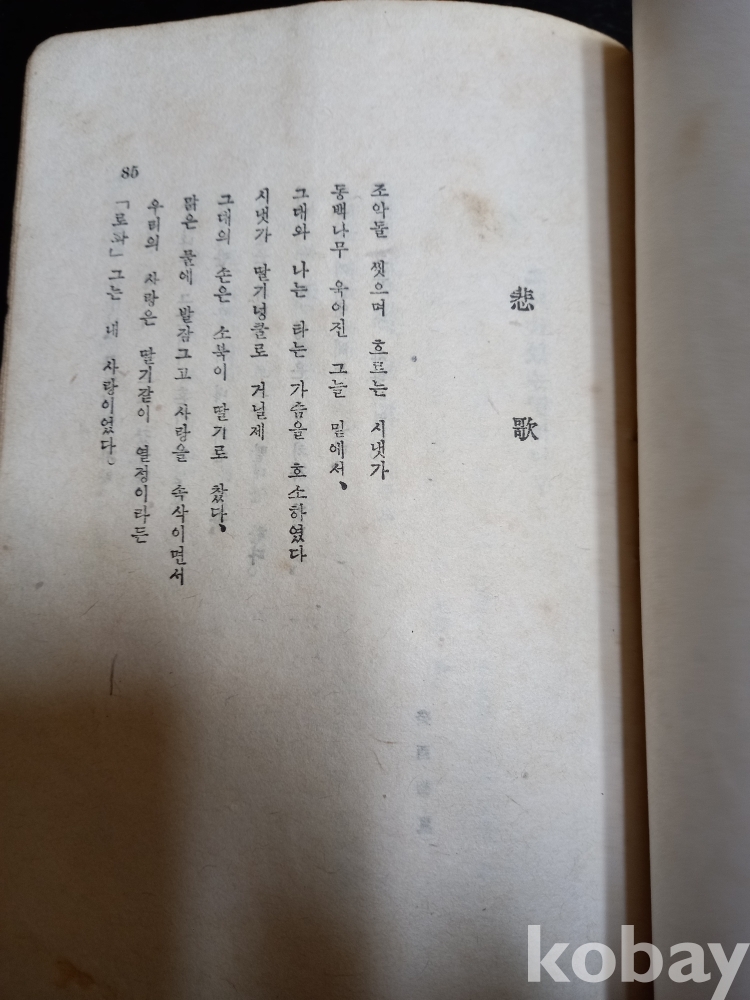 悲歌
조악돌 씻으며 흐르는 시냇가
동백나무 욱어진 그늘 밑에서、
그대와 나는 타는 가슴을 호소하였다
시냇가 딸기넝쿨로 거닐제
그대의 손은 소북이 딸기로 찼다、
맑은 물에 발잠그고 사랑을 속삭이면서
우리의 사랑은 딸기같이 열정이라든
「로짜」그는 내 사랑이었다。
85
kobay